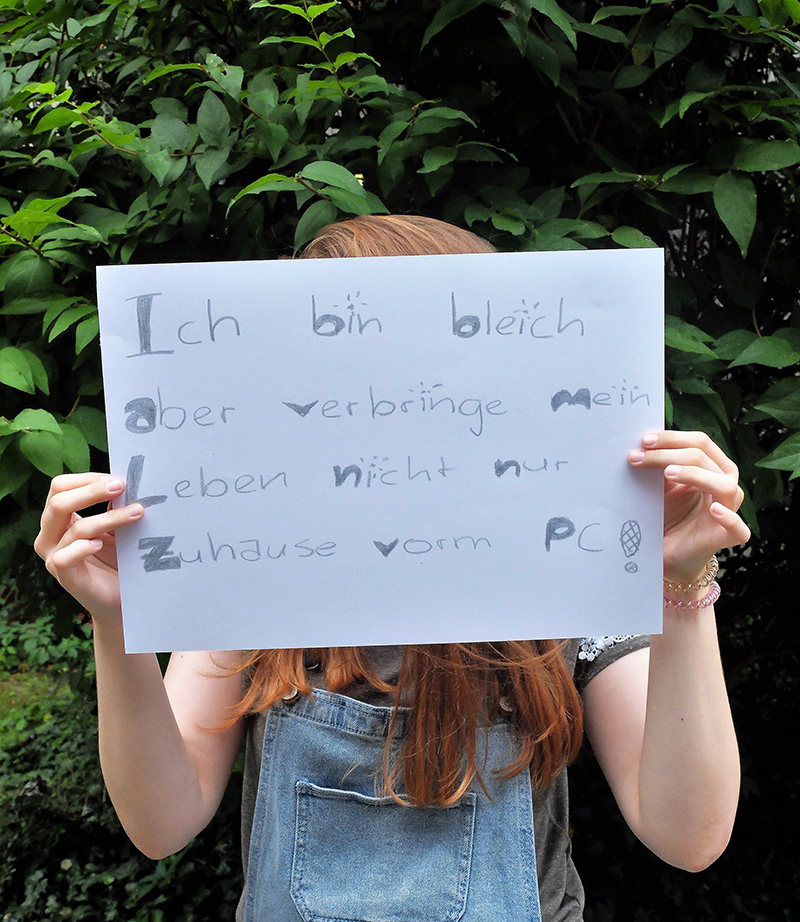 Ich bin bleich
aber verbringe mein
Leben nicht nur
Zuhause vorm PC!